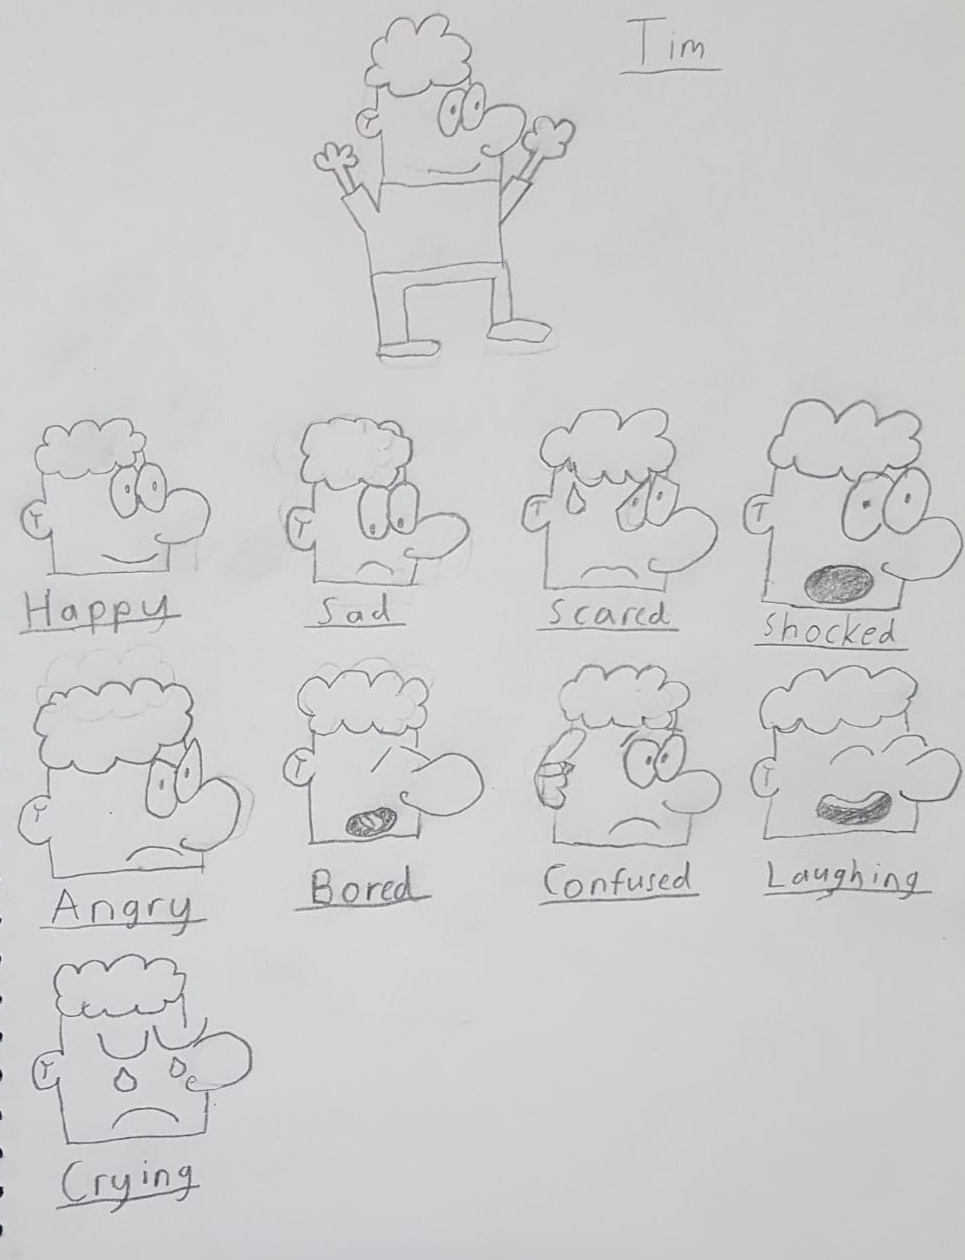 Tim
Happy
Sad
Scared
Shocked
Angry
Bored
Confused
Laughing
Crying